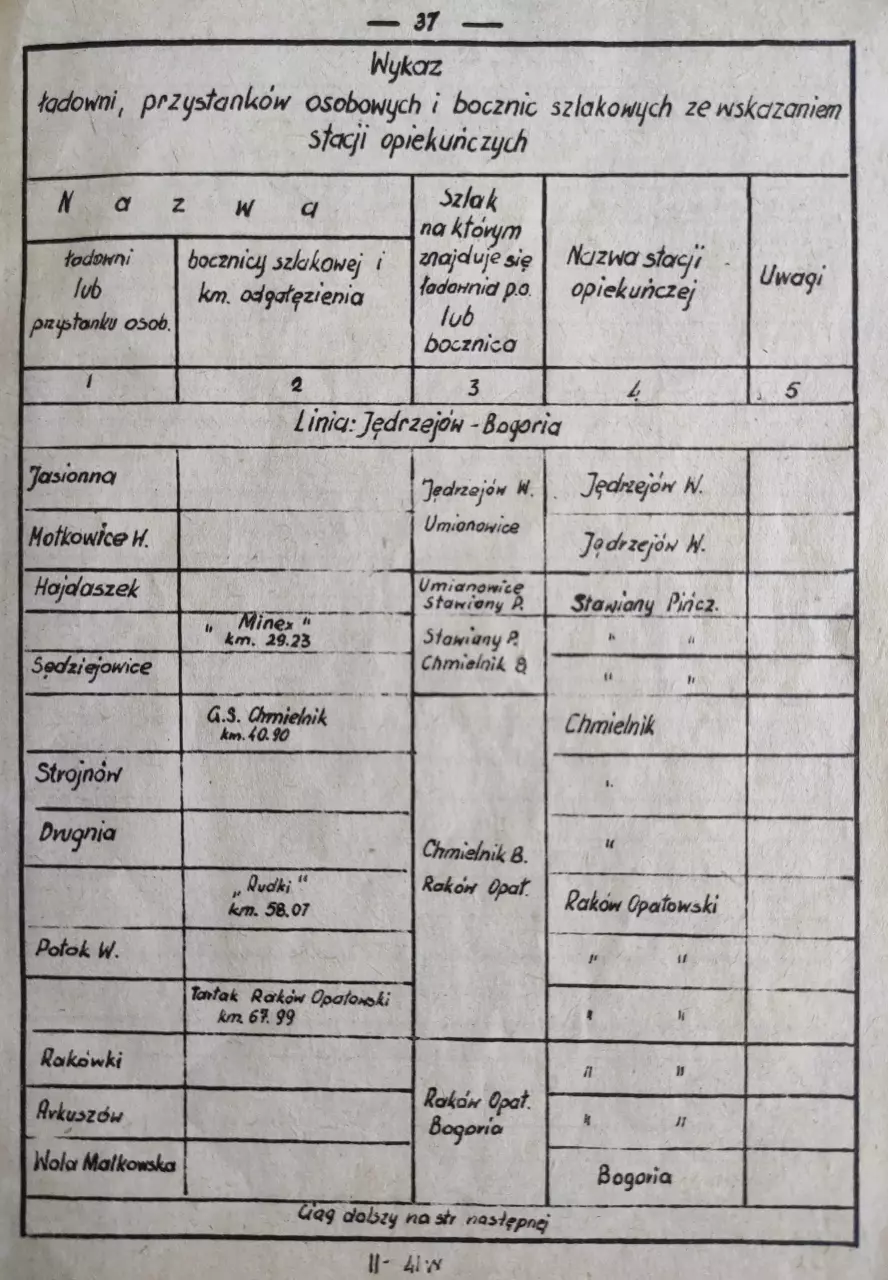 — 37 —
Wykaz
ładowni, przystanków osobowych i bocznic szlakowych ze wskazaniem
stacji opiekuńczych
Nazwa
ładowni
lub
przystanku osob.
bocznicy szlakowej i
km. odgałęzienia
Szlak
na którym
znajduje się
ładownia p.o.
lub
bocznica
Nazwa stacji
opiekuńczej
Uwagi
1 2 3 4 5
Linia: Jędrzejów - Bogoria
Jasionna Jędrzejów W. Jędrzejów W.
Motkowice W. Umianowice Jędrzejów W.
Hajdaszek Umianowice
Stawiany P. Stawiany Pińcz.
„ Minex "
km. 29.23 Stawiany P. " "
Sędziejowice Chmielnik B " "
G.S. Chmielnik
km. 40.90 Chmielnik
Strojnów "
Drugnia Chmielnik B. "
„ Rudki "
km. 58.07 Raków Opat. Raków Opatowski
Potok W. " "
Tartak Raków Opatowski
km. 67.99 " "
Rakówki " "
Arkuszów Raków Opat.
Bogoria " "
Wola Malkowska Bogoria
Ciąg dalszy na str następnej